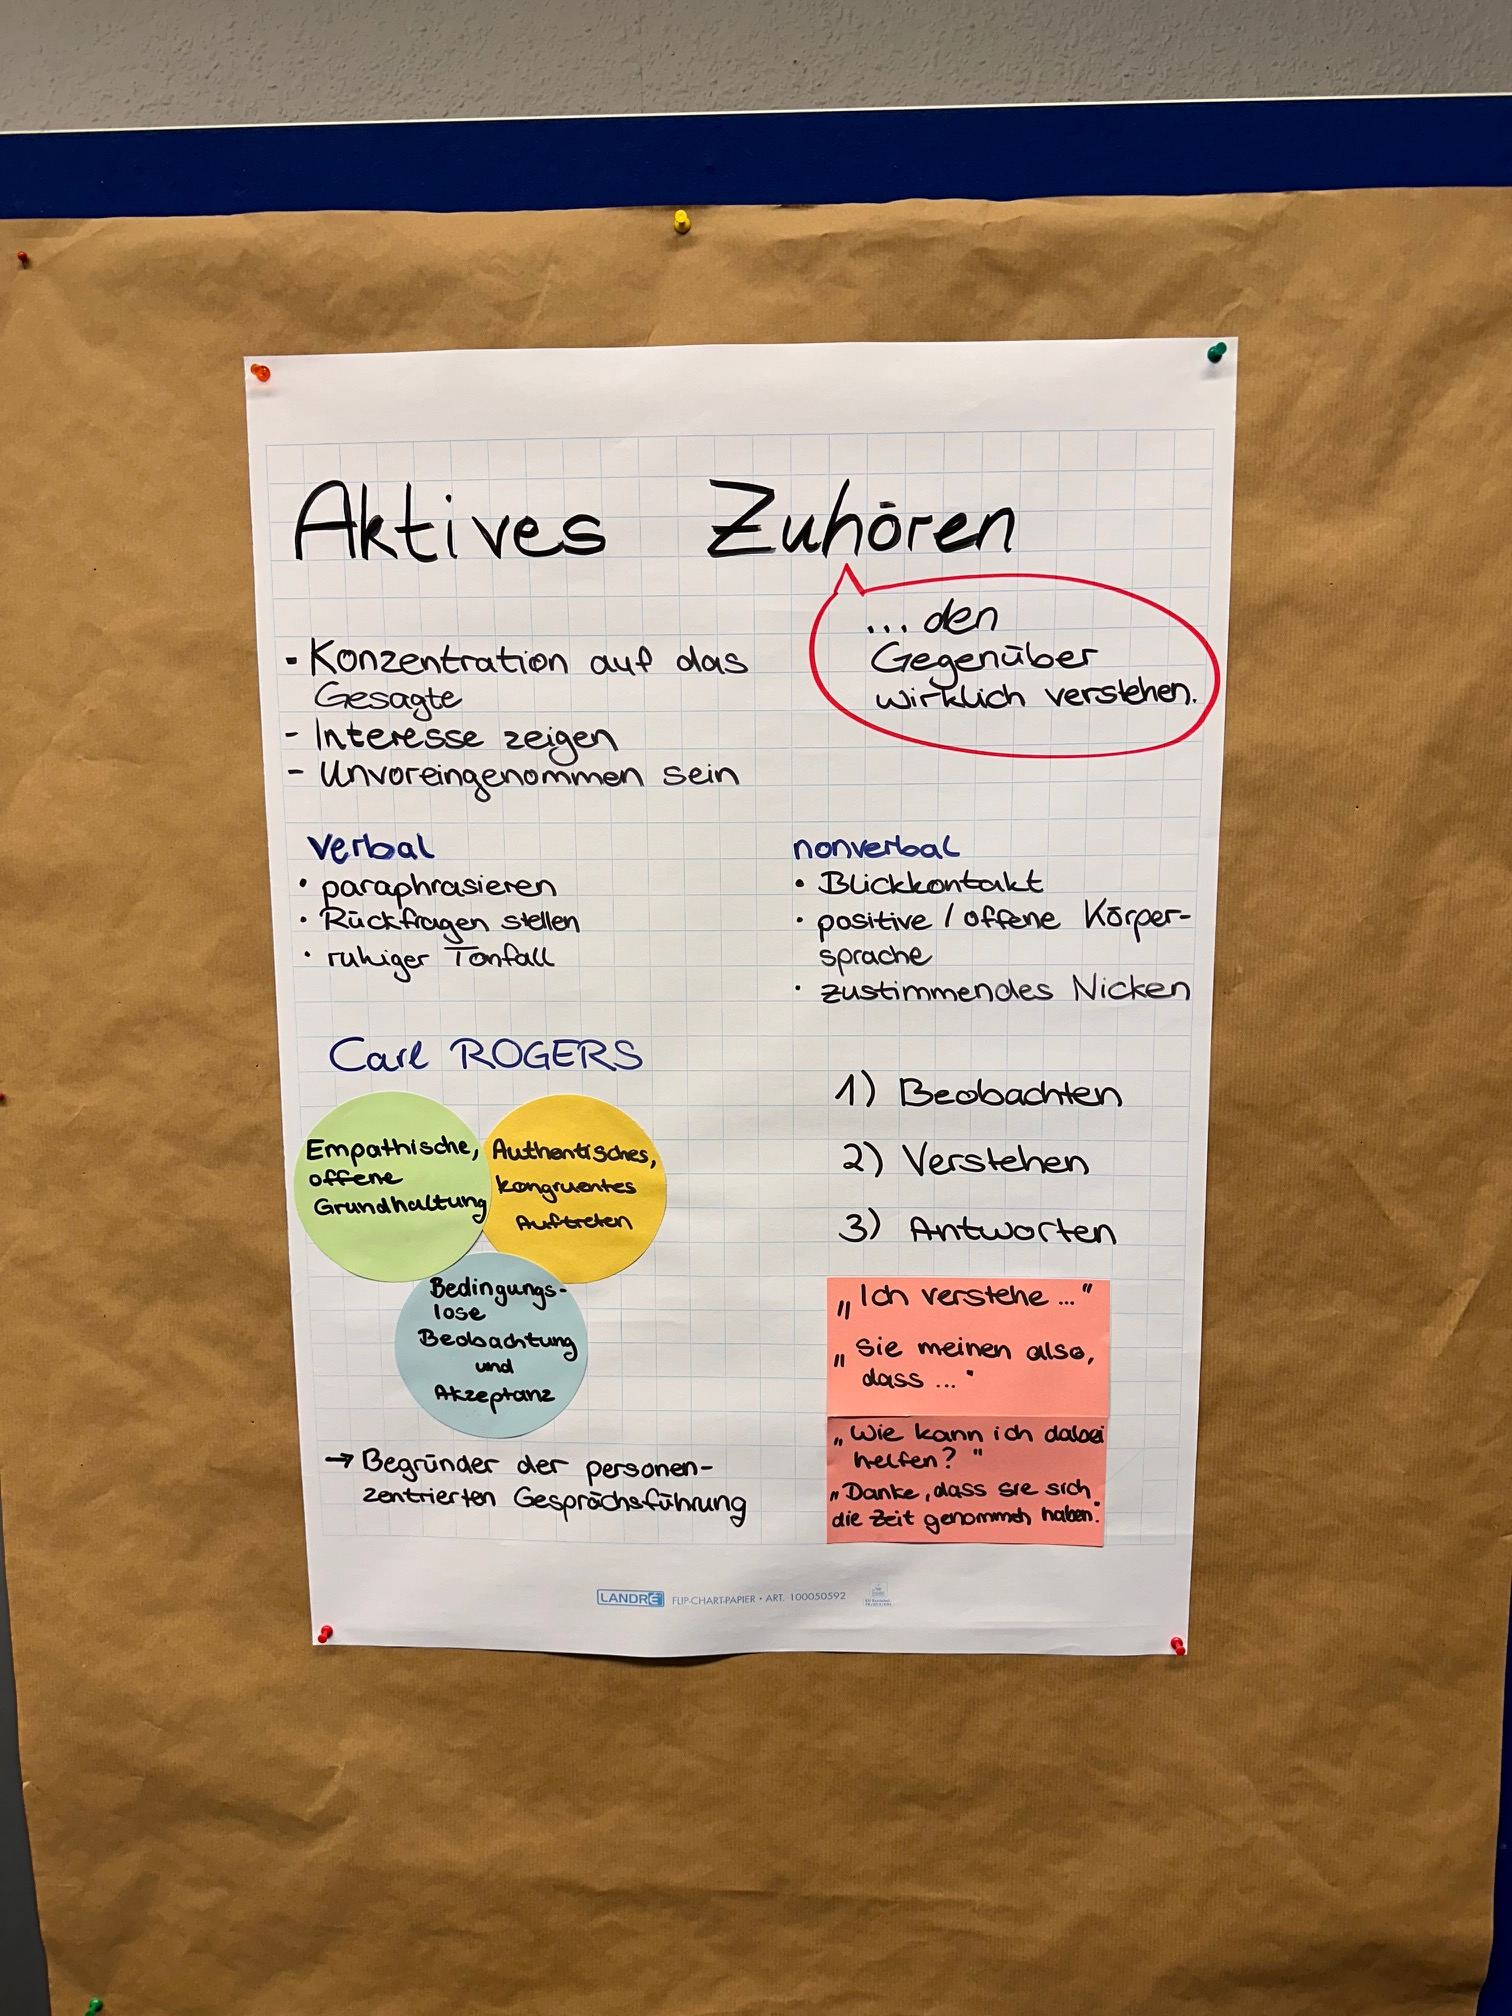 Aktives Zuhören
... den
Gegenüber
wirklich verstehen.
- Konzentration auf das
Gesagte
- Interesse zeigen
- Unvoreingenommen sein
verbal
• paraphrasieren
• Rückfragen stellen
• ruhiger Tonfall
nonverbal
• Blickkontakt
• positive / offene Körper-
sprache
• zustimmendes Nicken
Carl ROGERS
Empathische,
offene
Grundhaltung
Authentisches,
kongruentes
Auftreten
Bedingungs-
lose
Beobachtung
und
Akzeptanz
→ Begründer der personen-
zentrierten Gesprächsführung
1) Beobachten
2) Verstehen
3) Antworten
„Ich verstehe ..."
„Sie meinen also,
dass ..."
„Wie kann ich dabei
helfen?"
„Danke, dass sie sich
die Zeit genommen haben."
LANDRÉ FLIP-CHART-PAPIER • ART. 100050592